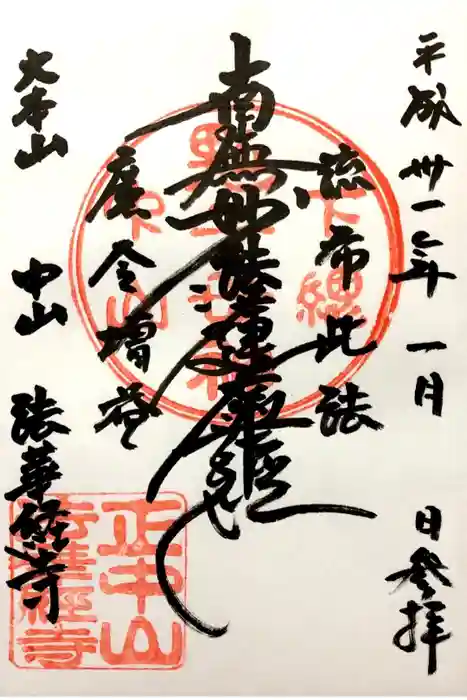 平成卅一年 一月 日参拝
流布此法
南無妙法蓮華経
広令増益
大本山 中山 法華経寺
正中山
法華経寺